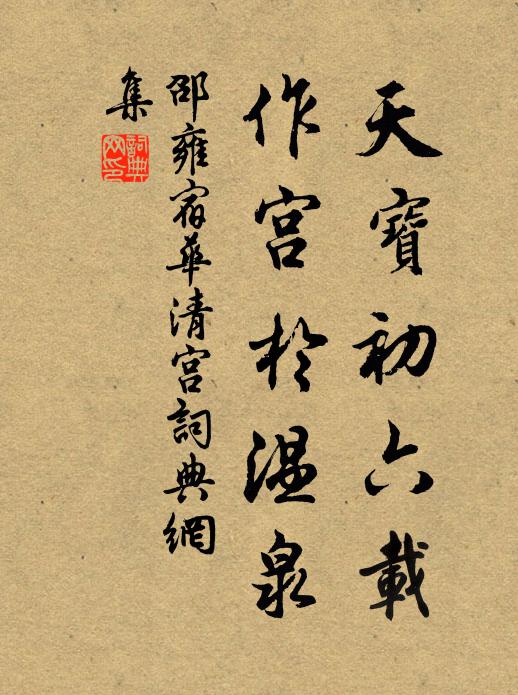 天寶初六載
作宮於溫泉
邵雍宿華清宮詞典網
集
詞典
网印